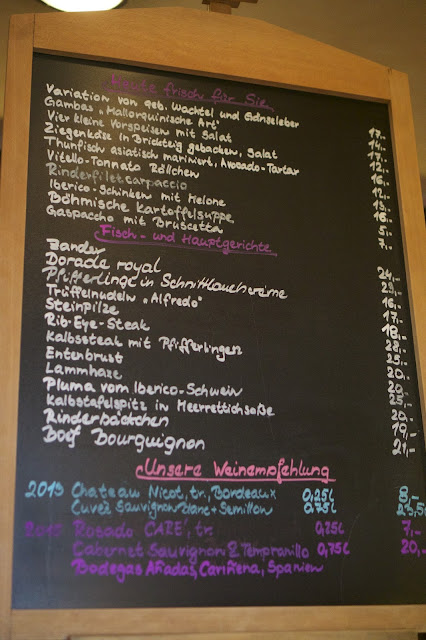 Heute frisch für Sie
Variation von geb. Wachtel und Gänseleber 17.-
Gambas "Mallorquinische Art" 14.-
Vier kleine Vorspeisen mit Salat 17.-
Ziegenkäse in Brickteig gebacken, Salat 12.-
Thunfisch asiatisch mariniert, Avocado-Tartar 16.-
Vitello-Tonnato Röllchen 12.-
Rinderfiletcarpaccio 13.-
Iberico-Schinken mit Melone 16.-
Böhmische Kartoffelsuppe 5.-
Gaspacho mit Bruscetta 7.-
Fisch- und Hauptgerichte
Zander 24,-
Dorade royal 23,-
Pfifferlinge in Schnittlauchcrème 16,-
Trüffelnudeln "Alfredo" 17,-
Steinpilze 18,-
Rib-Eye-Steak 28,-
Kalbssteak mit Pfifferlingen 25,-
Entenbrust 20,-
Lammhaxe 20,-
Pluma vom Iberico-Schwein 25,-
Kalbstafelspitz in Meerrettichsoße 20,-
Rinderbäckchen 19,-
Bœf Bourguignon 21,-
Unsere Weinempfehlung
2013 Chateau Nicot, tr., Bordeaux 0,25l 8,-
Cuveé Sauvignon blanc + Semillon 0,75l 23,5
2015 Rosado CARE, tr. 0,25l 7,-
Cabernet Sauvignon & Tempranillo 0,75l 20,-
Bodegas Añadas, Cariñena, Spanien